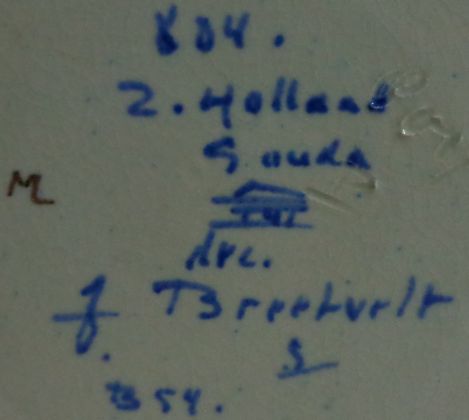 804.
Z. Holland
Gouda
M
dec.
J. Breetvelt